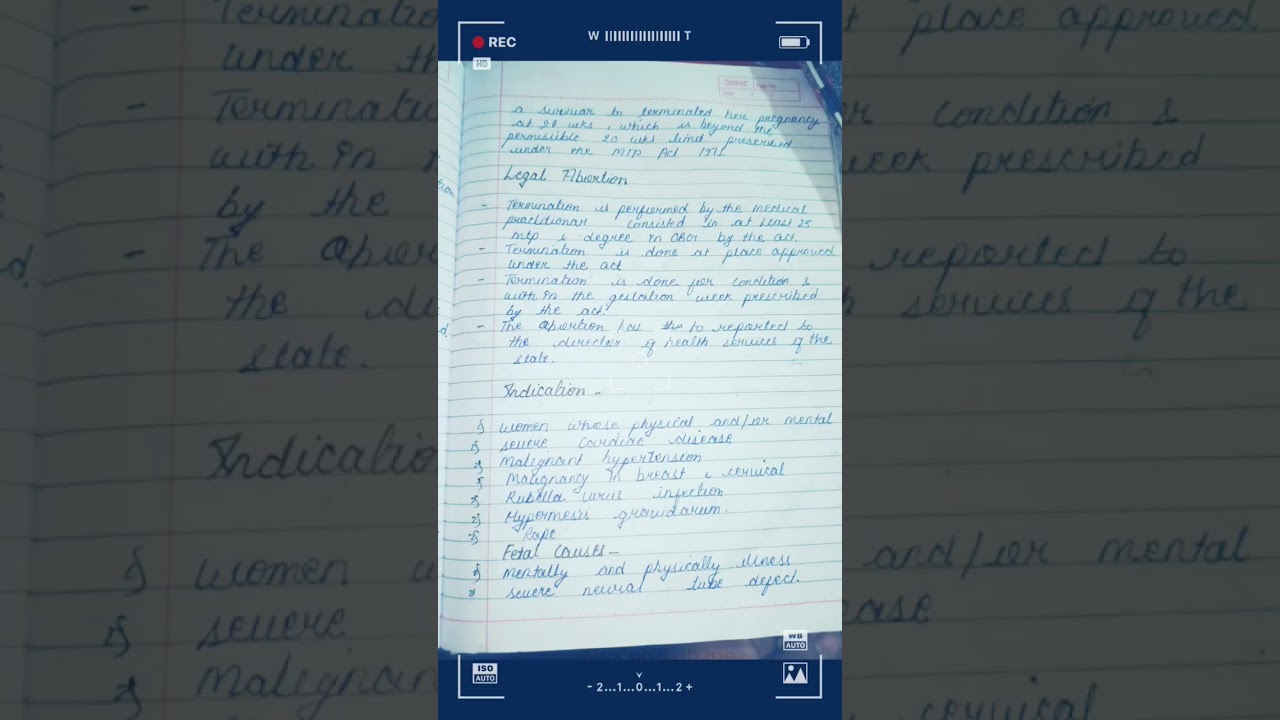 REC
W T
HD
a survivar to terminated her pregnancy
at 28 wks, which is beyond the
permissible 20 wks limit prescribed
under the MTP Act 1971
Legal Abortion
- Termination is performed by the medical
practitionar consisted in at least 25
mtp & degree in OBGY by the act.
- Termination is done at place approved
under the act
- Termination is done for condition &
with in the gestation week prescribed
by the act
- The abortion has to reported to
the director of health services of the
state.
Indication -
women whose physical and/or mental
severe cardiac disease
Malignant hypertension
Malignancy in breast & cervical
Rubella virus infection
Hypermesis gravidarum.
Rape
Fetal causes -
mentally and physically illness
severe neural tube defect.
ISO
AUTO
- 2...1...0...1...2 +
WB
AUTO